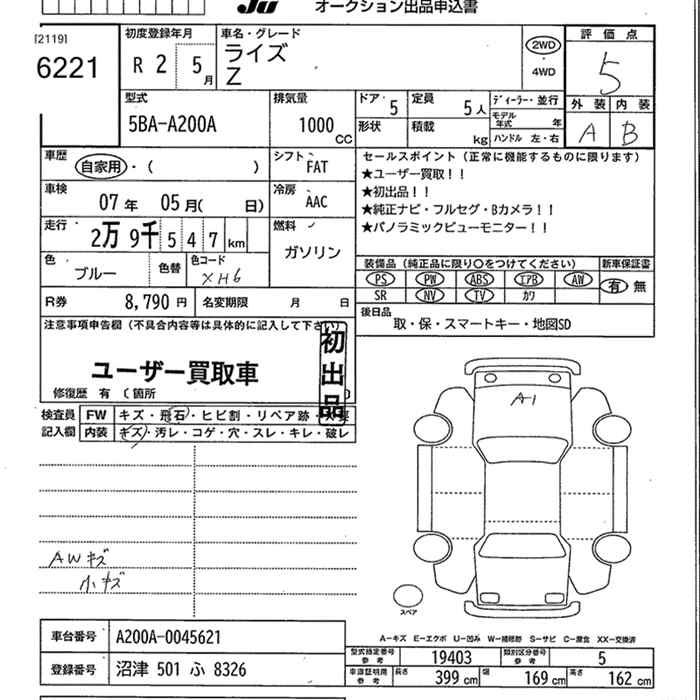 JU オークション出品申込書
[2119]
6221
初度登録年月
R 2 5月
車名・グレード
ライズ
Z
2WD
4WD
評価点
5
外装 内装
A B
型式
5BA-A200A
排気量
1000 CC
ドア 5
定員 5人
形状
積載 kg
ディーラー・並行
モデル年式 年
ハンドル 左・右
車歴
自家用・( )
シフト
FAT
車検
07年 05月( 日)
冷房
AAC
走行
2万9千547km
燃料
ガソリン
色
ブルー
色替
色コード
XH6
R券 8,790円
名変期限 月 日
セールスポイント(正常に機能するものに限ります)
★ユーザー買取!!
★初出品!!
★純正ナビ・フルセグ・Bカメラ!!
★パノラミックビューモニター!!
装備品(純正品に限り〇をつけてください)
新車保証書
PS PW ABS エアB AW
有・無
SR NV TV カワ
後日品
取・保・スマートキー・地図SD
注意事項申告欄(不具合内容等は具体的に記入して下さい)
初出品
ユーザー買取車
修復歴 有 (箇所 )
検査員記入欄
FW キズ・飛石・ヒビ割・リペア跡・
内装 キズ・汚レ・コゲ・穴・スレ・キレ・破レ
A1
AWキズ
小キズ
スペア
A-キズ E-エクボ U-凹み W-補修跡 S-サビ C-腐食 XX-交換済
車台番号 A200A-0045621
登録番号 沼津 501 ふ 8326
型式指定番号 参考 19403
類別区分番号 参考 5
車庫証明用 参考 長さ 399 cm 幅 169 cm 高さ 162 cm